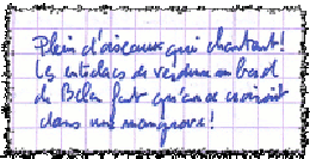 Plein d'oiseaux qui chantent!
Les entrelacs de verdure au bord
du Bélier font qu'on se croirait
dans une mangrove!